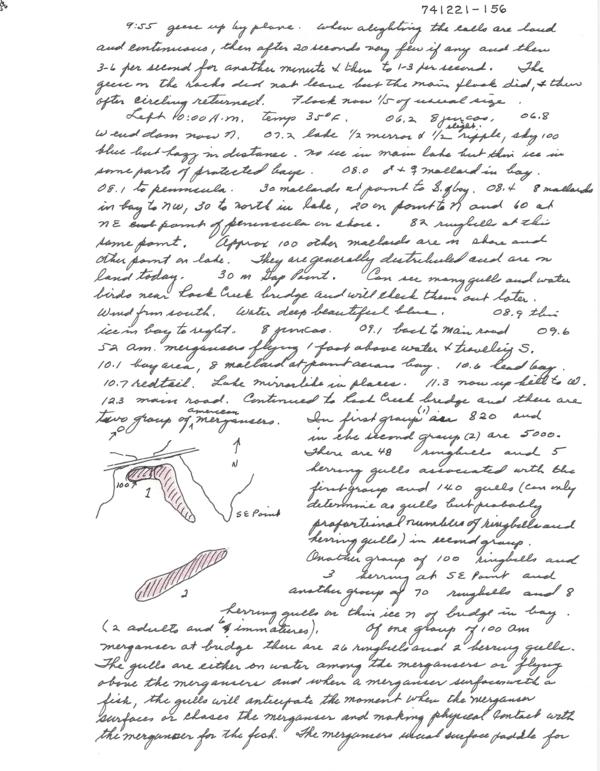 741221-156
9:55 geese up by plane. When alighting the calls are loud
and continuous, then after 20 seconds very few if any and then
3-6 per second for another minute & then to 1-3 per second. The
geese on the rocks did not leave but the main flock did, & then
after circling returned. Flock now 1/5 of usual size.
Left 10:00 A.m. temp 35°F. 06.2 8 juncos. 06.8
W end dam now N. 07.2 lake 1/2 mirror & 1/2 slight ripple, sky 100
blue but hazy in distance. No ice in main lake but thin ice in
some parts of protected bays. 08.0 ♂ + ♀ mallard in bay.
08.1 to peninsula. 30 mallards at point to S. of bay. 08.4 8 mallards
in bay to NW, 30 to north in lake, 20 on point to N and 60 at
NE end point of peninsula on shore. 82 ringbill at this
same point. Approx 100 other mallards are on shore and
other point on lake. They are generally distributed and are on
land today. 30 on Gap Point. Can see many gulls and water
birds near Rock Creek bridge and will check them out later.
Wind from south. Water deep beautiful blue. 08.9 thin
ice in bay to right. 8 juncos. 09.1 back to main road 09.6
52 am. mergansers flying 1 foot above water & traveling S.
10.1 bay area, 8 mallard at point across bay. 10.6 head bay.
10.7 redtail. Lake mirrorlike in places. 11.3 now up hill to W.
12.3 main road. Continued to Rock Creek bridge and there are
two group of american mergansers.
In first group (1) are 820 and
in the second group (2) are 5000.
There are 48 ringbills and 5
herring gulls associated with the
first group and 140 gulls (can only
determine as gulls but probably
proportional numbers of ringbills and
herring gulls) in second group.
Another group of 100 ringbills and
3 herring at SE Point and
another group of 70 ringbills and 8
herring gulls on thin ice N of bridge in bay.
N
100
1
SE Point
2
(2 adults and 6 immatures). Of one group of 100 am
merganser at bridge there are 26 ringbills and 2 herring gulls.
The gulls are either on water among the mergansers or flying
above the mergansers and when a merganser surfaces with a
fish, the gulls will anticipate the moment when the merganser
surfaces or chases the merganser and making physical contact with
the merganser for the fish. The mergansers usual surface paddle for